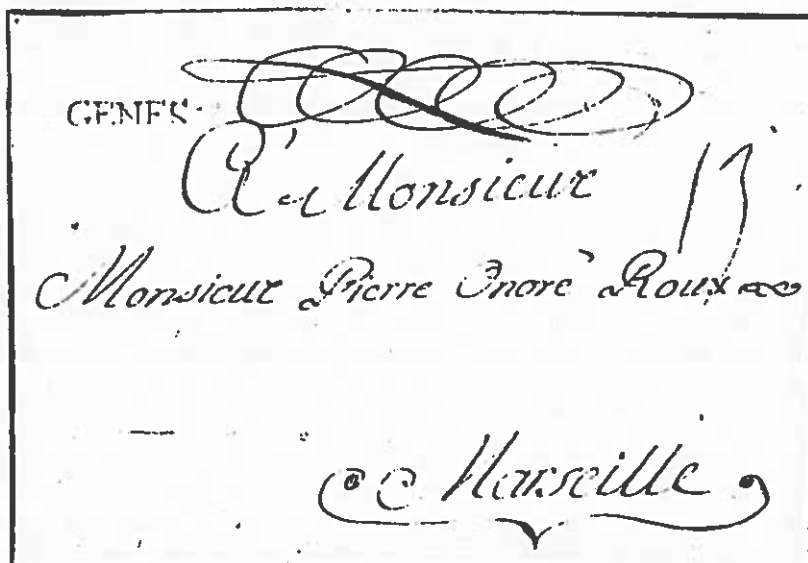 GENES
A Monsieur
13
Monsieur Pierre Onorè Roux
A Marseille